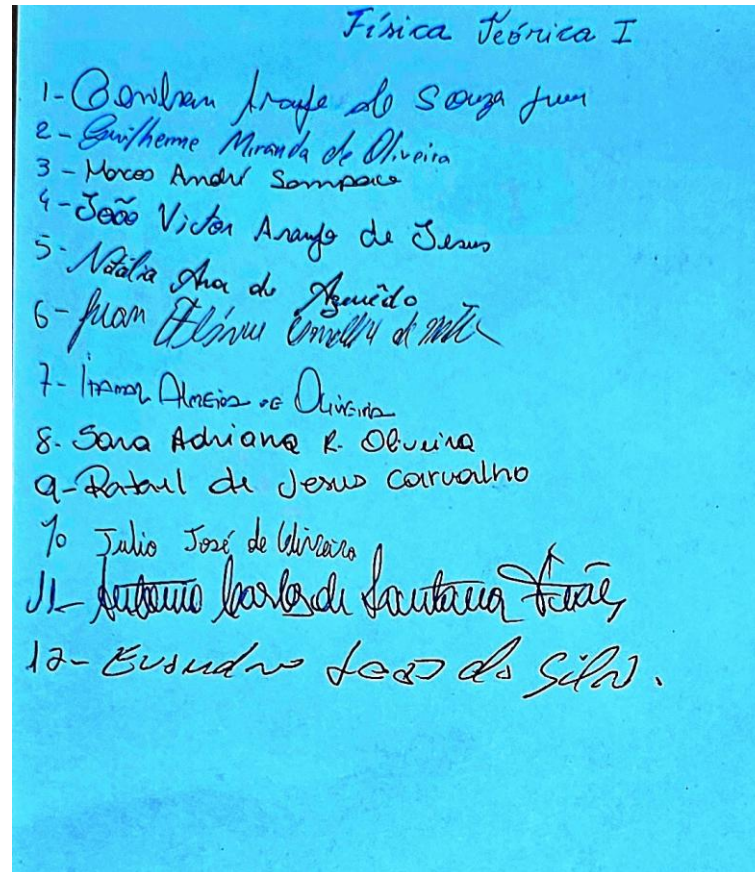 Física Teórica I
1- de Souza
2- Guilherme Miranda de Oliveira
3- Marcos André Sampaio
4- João Victor Araujo de Jesus
5- Natália Ana de Azevêdo
6- Juan
7- Itamar Almeida de Oliveira
8- Sara Adriana R. Oliveira
9- Rafael de Jesus Carvalho
10 Julio José de Oliveira
11- Antonio Carlos de Santana
12- Evandro da Silva.